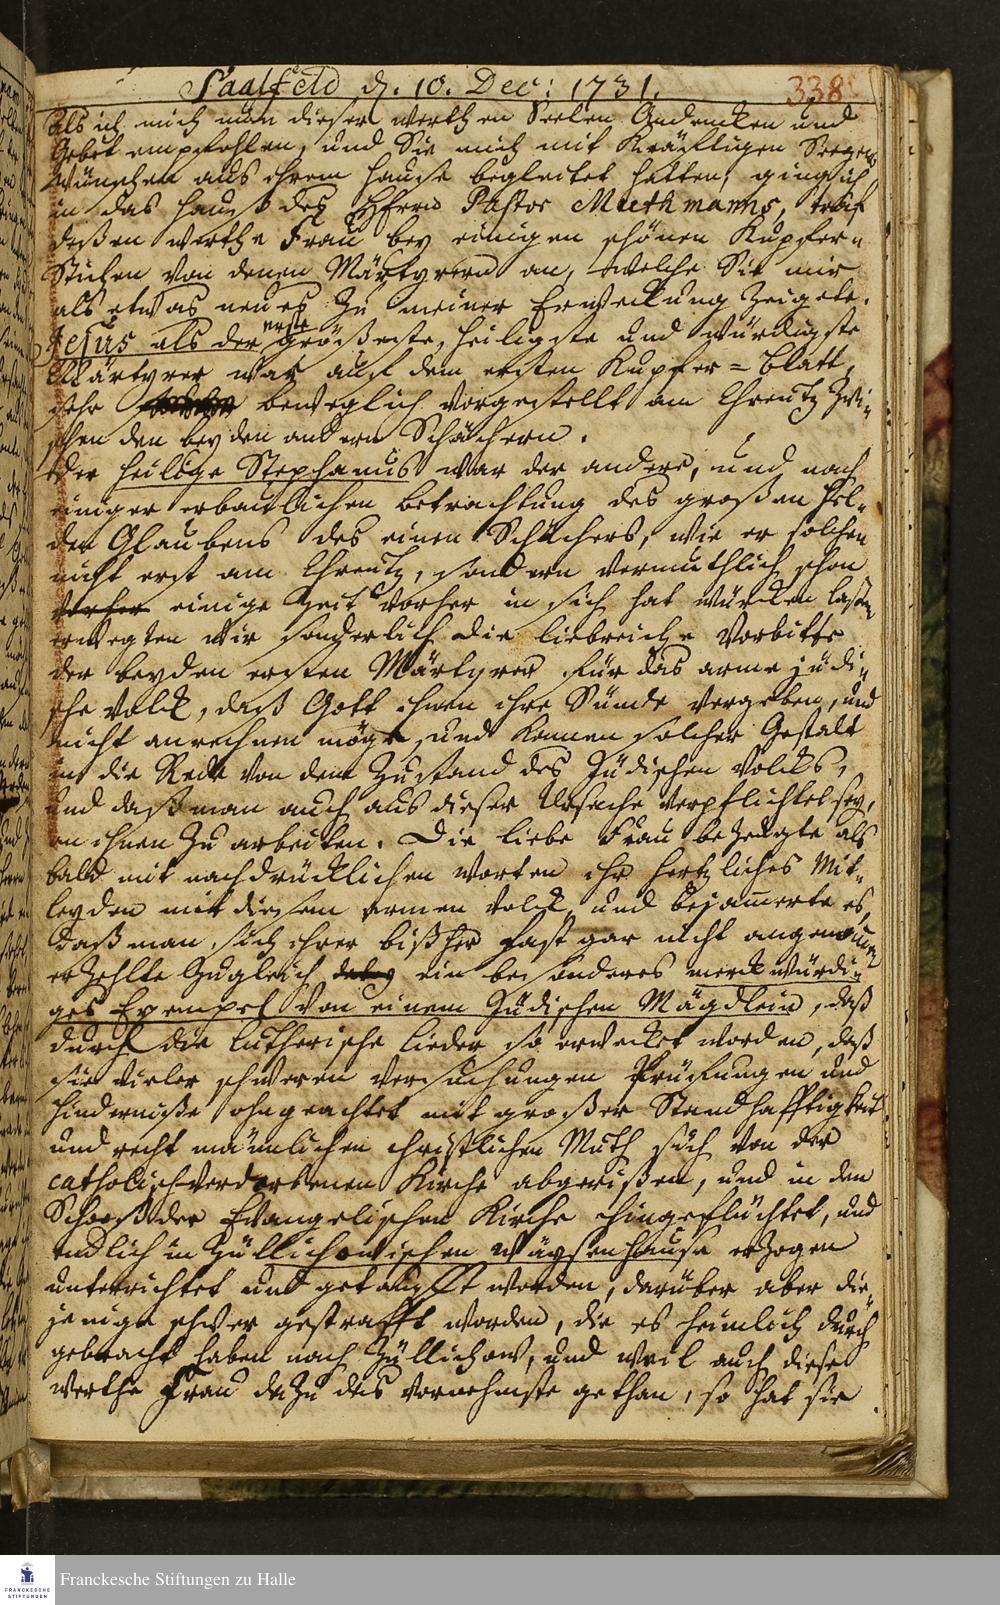 Saalfeld d. 10. Dec: 1731.
338
Als ich mich nun dieser werthen Seelen Andencken und
Gebet empfohlen, und Sie mich mit kräfftigen Seegens
wünschen aus ihrem Hause begleitet hatten, ging ich
in das Hauß des Herrn Pastor Muthmanns, traf
deßen werthe Frau bey einigen schönen Kupfer-
stichen von denen Märtyrern an, welche Sie mir
als etwas neues zu meiner Erweckung zeigete.
Jesus als der erste größeste, heiligste und würdigste
Märtyrer war auf dem ersten Kupfer-blatt,
sehr beweglich vorgestellt am Creutz zwi-
schen den beyden andern Schächern.
Der heilige Stephanus war der andere, und nach
einiger erbaulichen betrachtung des großen Hel-
den Glaubens des einen Schächers, wie er solchen
nicht erst am Creutz, sondern vermuthlich schon
vorher einige Zeit vorher in sich hat würcken laßen
erwegten wir sonderlich die liebreiche Vorbitte
der beyden ersten Märtyrer für das arme jüdi-
sche volck, daß Gott ihnen ihre Sünde vergeben, und
nicht anrechnen möge, und kamen solcher Gestalt
in die Rede von dem Zustand des Jüdischen Volcks,
und daß man auch aus dieser Ursache verpflichtet sey,
an ihnen zu arbeiten. Die liebe Frau bezeugte als
bald mit nachdrücklichen worten ihr hertzliches Mit-
leyden mit diesem armen Volck, und bejammerte es,
daß man sich ihrer bißher fast gar nicht angenommen
erzehlte zugleich ein besonderes merckwürdi-
ges Exempel von einem Jüdischen Mägdlein, daß
durch die Lutherische Lieder so erwecket worden, daß
sie vieler schweren versuchungen Prüfungen und
Hinderniße ohngeachtet mit großer Standhafftigkeit
und recht männlichen christlichen Muth sich von der
catholisch-verdorbenen Kirche abgerißen, und in den
Schooß der Evangelischen Kirche hingeflüchtet, und
endlich in Züllichowischen Wäysenhause erzogen
unterrichtet und getaufft worden, darüber aber die-
jenige schwer gestrafft worden, die es heimlich durch
gebracht haben nach Züllichow, und weil auch diese
werthe Frau dazu das vornehmste gethan, so hat sie
Franckesche Stiftungen zu Halle
FRANCKESCHE
STIFTUNGEN